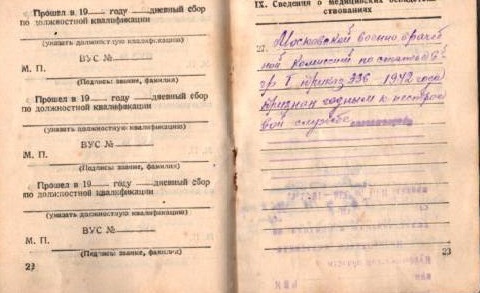 Прошел в 19 году дневный сбор
по должностной квалификации
(указать должностную квалификацию)
ВУС №
М. П.
(Подписы звание, фамилия)
Прошел в 19 году дневный сбор
по должностной квалификации
(указать должностную квалификацию)
ВУС №
М. П.
(Подписы звание, фамилия)
Прошел в 19 году дневный сбор
по должностной квалификации
(указать должностную квалификации)
ВУС №
М. П.
(Подписы звание, фамилия)
23
IX. Сведения о медицинских
ствованиях
Московской военно врачеб
ной комиссии по статье
гр I приказ 336 1942 года
признан годным к нестрое
вой службе
23